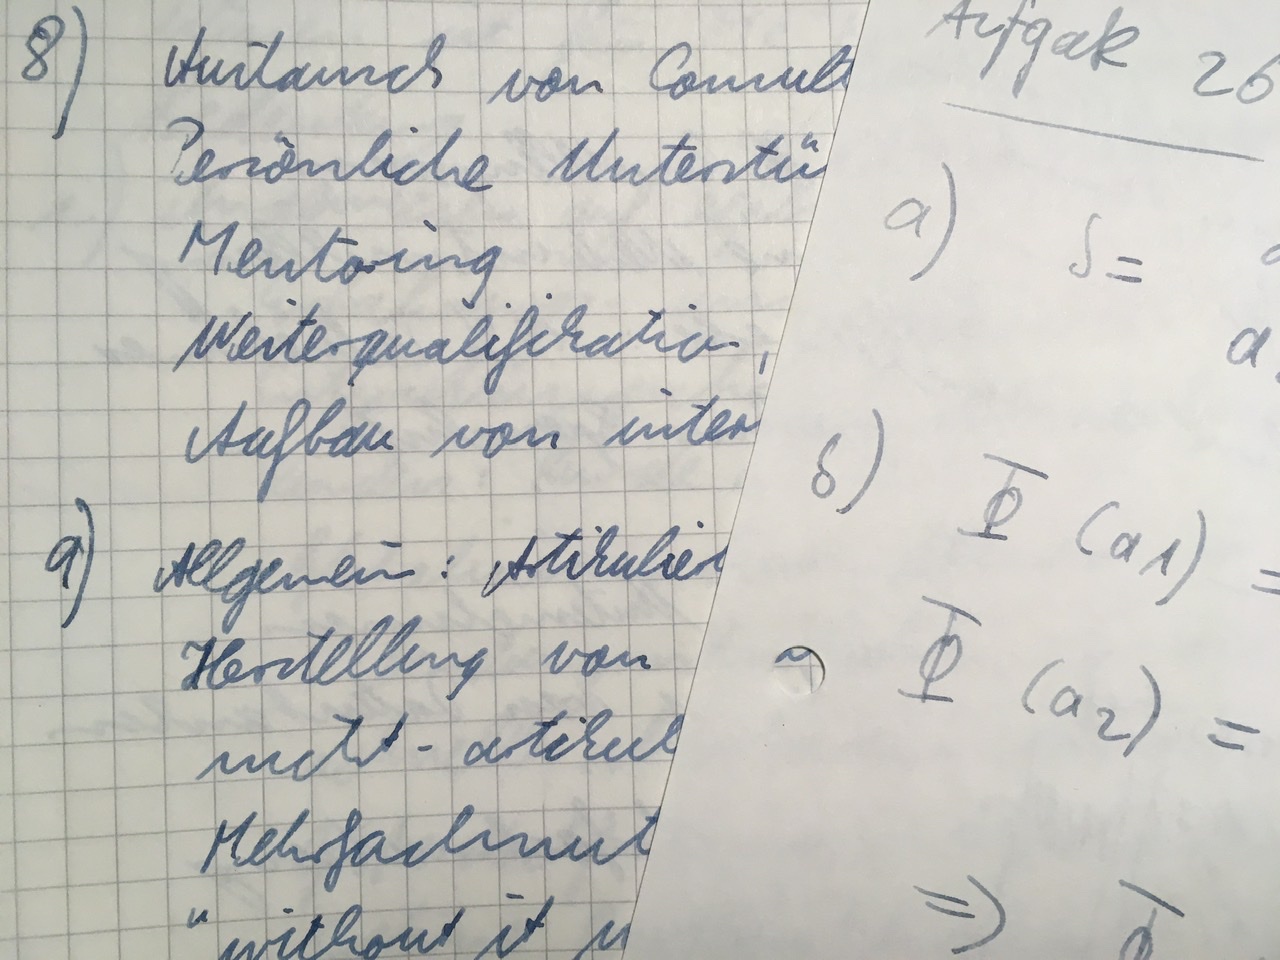 8) Austausch von Consult
Persönliche Unterstü
Mentoring
Weiterqualifikation,
Aufbau von inter
9) Allgemein: Artikulier
Herstellung von
nicht-artikul
Mehrfachnut
"without it
Aufgabe 26
a) S =
a
b) Φ (a1) =
Φ (a2) =
=> Φ